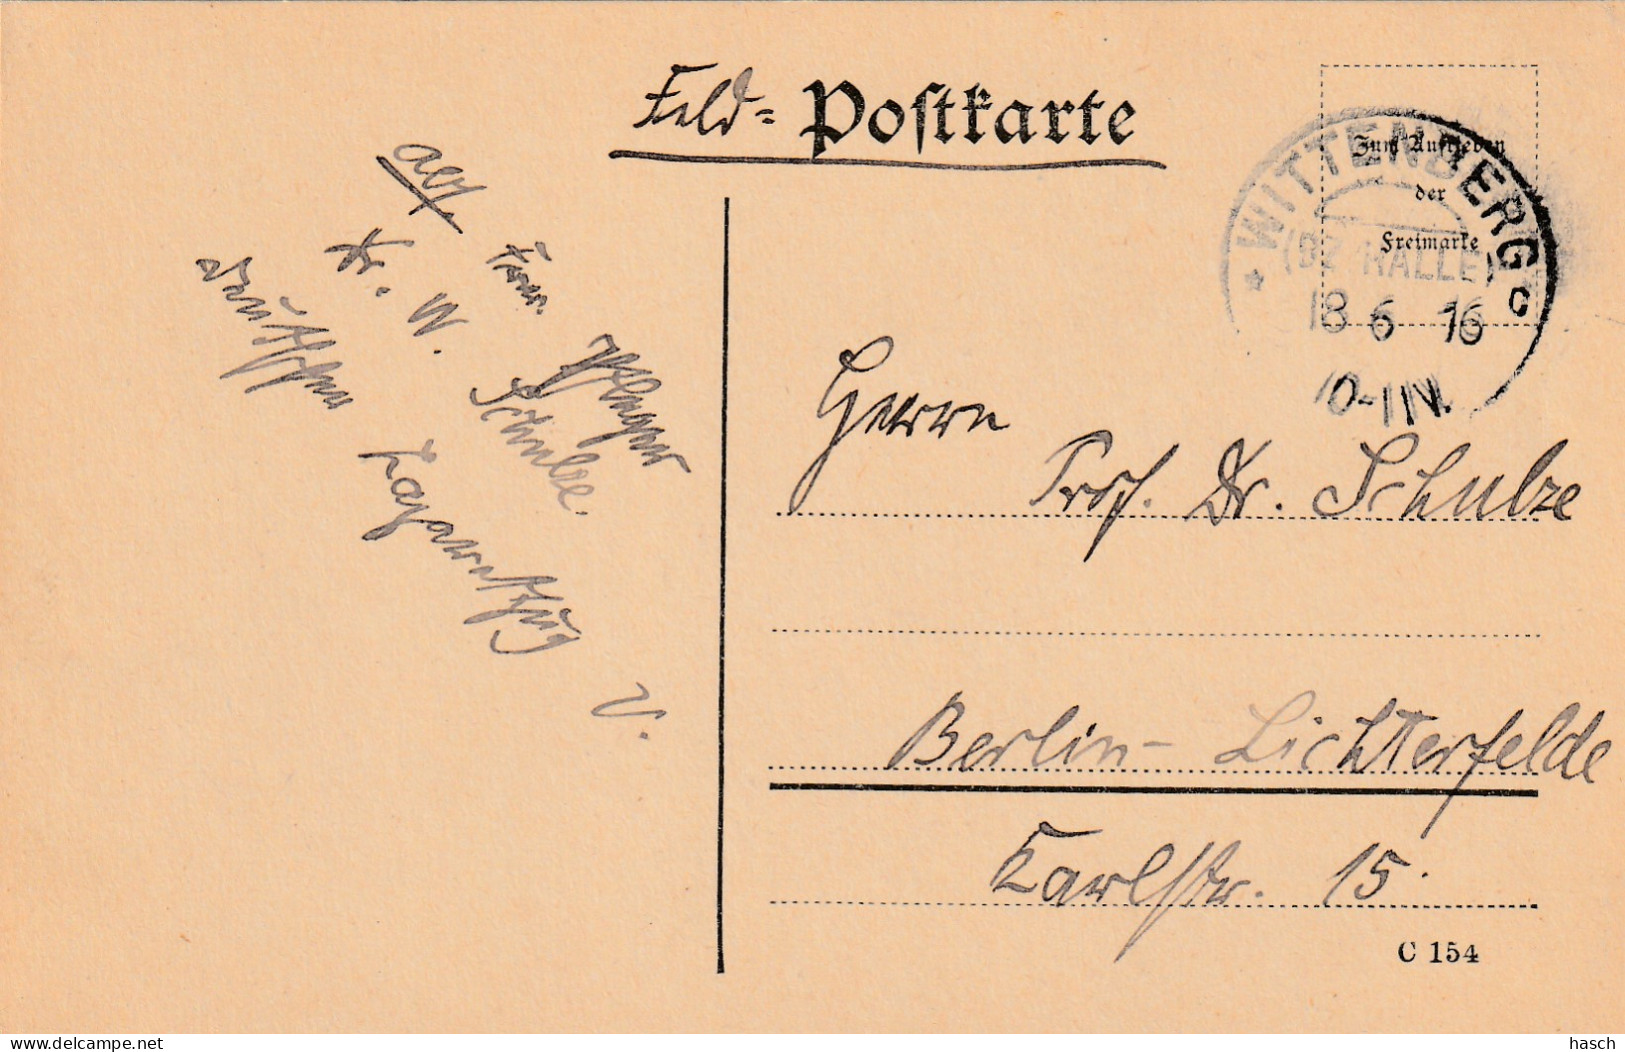 Feld= Postkarte
Zum Aufkleben
der
Freimarke
* WITTENBERG * c
(BZ HALLE)
18 6 16
10-11 V.
Abs.
Frw. Pfleger
Dr. W. Schulze.
Deutscher Lazarettzug
V.
Herrn
Prof. Dr. Schulze
Berlin-Lichterfelde
Karlstr. 15.
C 154
delcampe.net
hasch